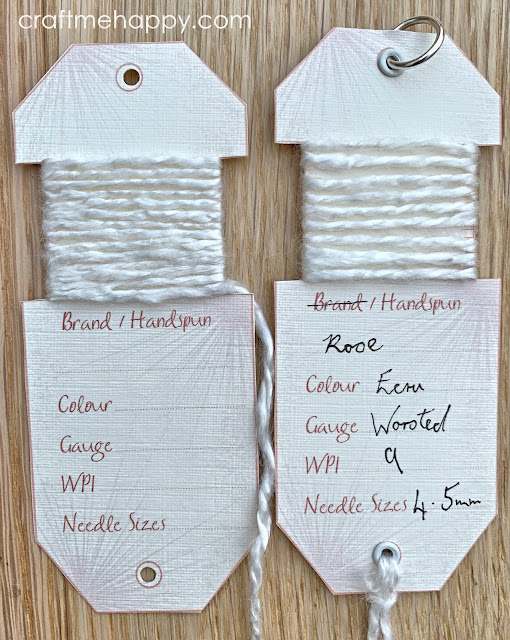 craftmehappy.com
Brand / Handspun
Colour
Gauge
WPI
Needle Sizes
Brand / Handspun
Rose
Colour Ecru
Gauge Worsted
WPI 9
Needle Sizes 4.5mm